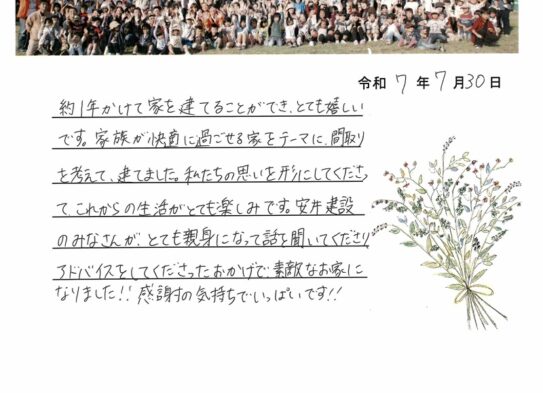 令和 7 年 7 月 30 日
約1年かけて家を建てることができ、とても嬉しい
です。家族が快適に過ごせる家をテーマに、間取り
を考えて、建てました。私たちの思いを形にしてくださっ
て、これからの生活がとても楽しみです。安井建設
のみなさんが、とても親身になって話を聞いてくださり
アドバイスをしてくださったおかげで素敵なお家に
なりました!! 感謝の気持ちでいっぱいです!!